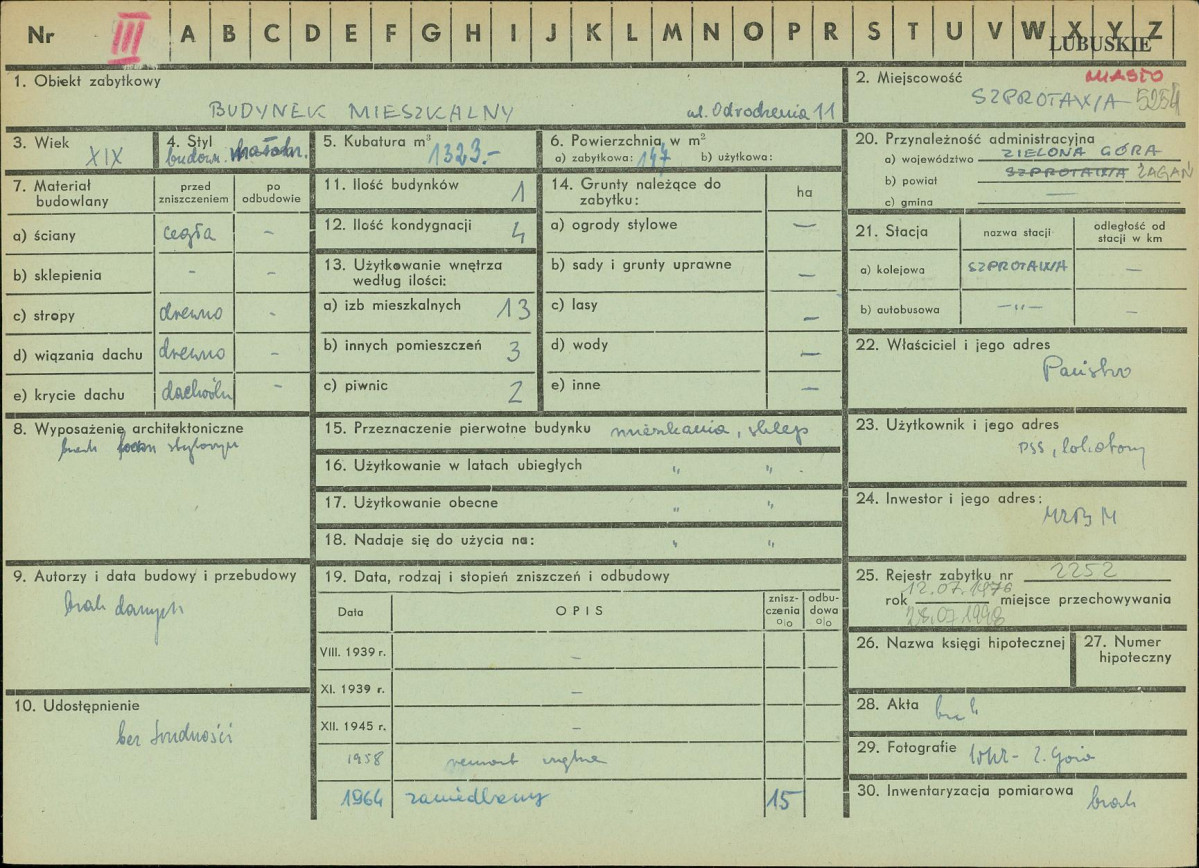 Nr III A B C D E F G H I J K L M N O P R S T U V W X Y Z
LUBUSKIE
1. Obiekt zabytkowy
BUDYNEK MIESZKALNY ul. Odrodzenia 11
2. Miejscowość MIASTO
SZPROTAWA 5254
3. Wiek
XIX
4. Styl
budown. małom.
5. Kubatura m³
1323.-
6. Powierzchnia w m²
a) zabytkowa: 147 b) użytkowa:
20. Przynależność administracyjna
a) województwo ZIELONA GÓRA
b) powiat SZPROTAWA ŻAGAŃ
c) gmina —
7. Materiał budowlany
przed zniszczeniem
po odbudowie
a) ściany cegła -
b) sklepienia - -
c) stropy drewno -
d) wiązania dachu drewno -
e) krycie dachu dachówka -
11. Ilość budynków 1
12. Ilość kondygnacji 4
13. Użytkowanie wnętrza
według ilości:
a) izb mieszkalnych 13
b) innych pomieszczeń 3
c) piwnic 2
14. Grunty należące do
zabytku:
ha
a) ogrody stylowe —
b) sady i grunty uprawne —
c) lasy —
d) wody —
e) inne —
21. Stacja
nazwa stacji
odległość od
stacji w km
a) kolejowa SZPROTAWA —
b) autobusowa —"— —
22. Właściciel i jego adres
Państwo
8. Wyposażenie architektoniczne
brak stylowego
15. Przeznaczenie pierwotne budynku mieszkania, sklep
16. Użytkowanie w latach ubiegłych " "
17. Użytkowanie obecne " "
18. Nadaje się do użycia na: " "
23. Użytkownik i jego adres
PSS, lokatorzy
24. Inwestor i jego adres:
MZBM
9. Autorzy i data budowy i przebudowy
brak danych
19. Data, rodzaj i stopień zniszczeń i odbudowy
Data
OPIS
znisz-
czenia
o/o
odbu-
dowa
o/o
VIII. 1939 r. —
XI. 1939 r. —
XII. 1945 r. —
1958 remont
1964 zaniedbany 15
25. Rejestr zabytku nr 2252
12.07.1976
rok miejsce przechowywania
28.07.1998
26. Nazwa księgi hipotecznej
27. Numer
hipoteczny
10. Udostępnienie
bez trudności
28. Akta brak
29. Fotografie WKZ - Z. Góra
30. Inwentaryzacja pomiarowa brak